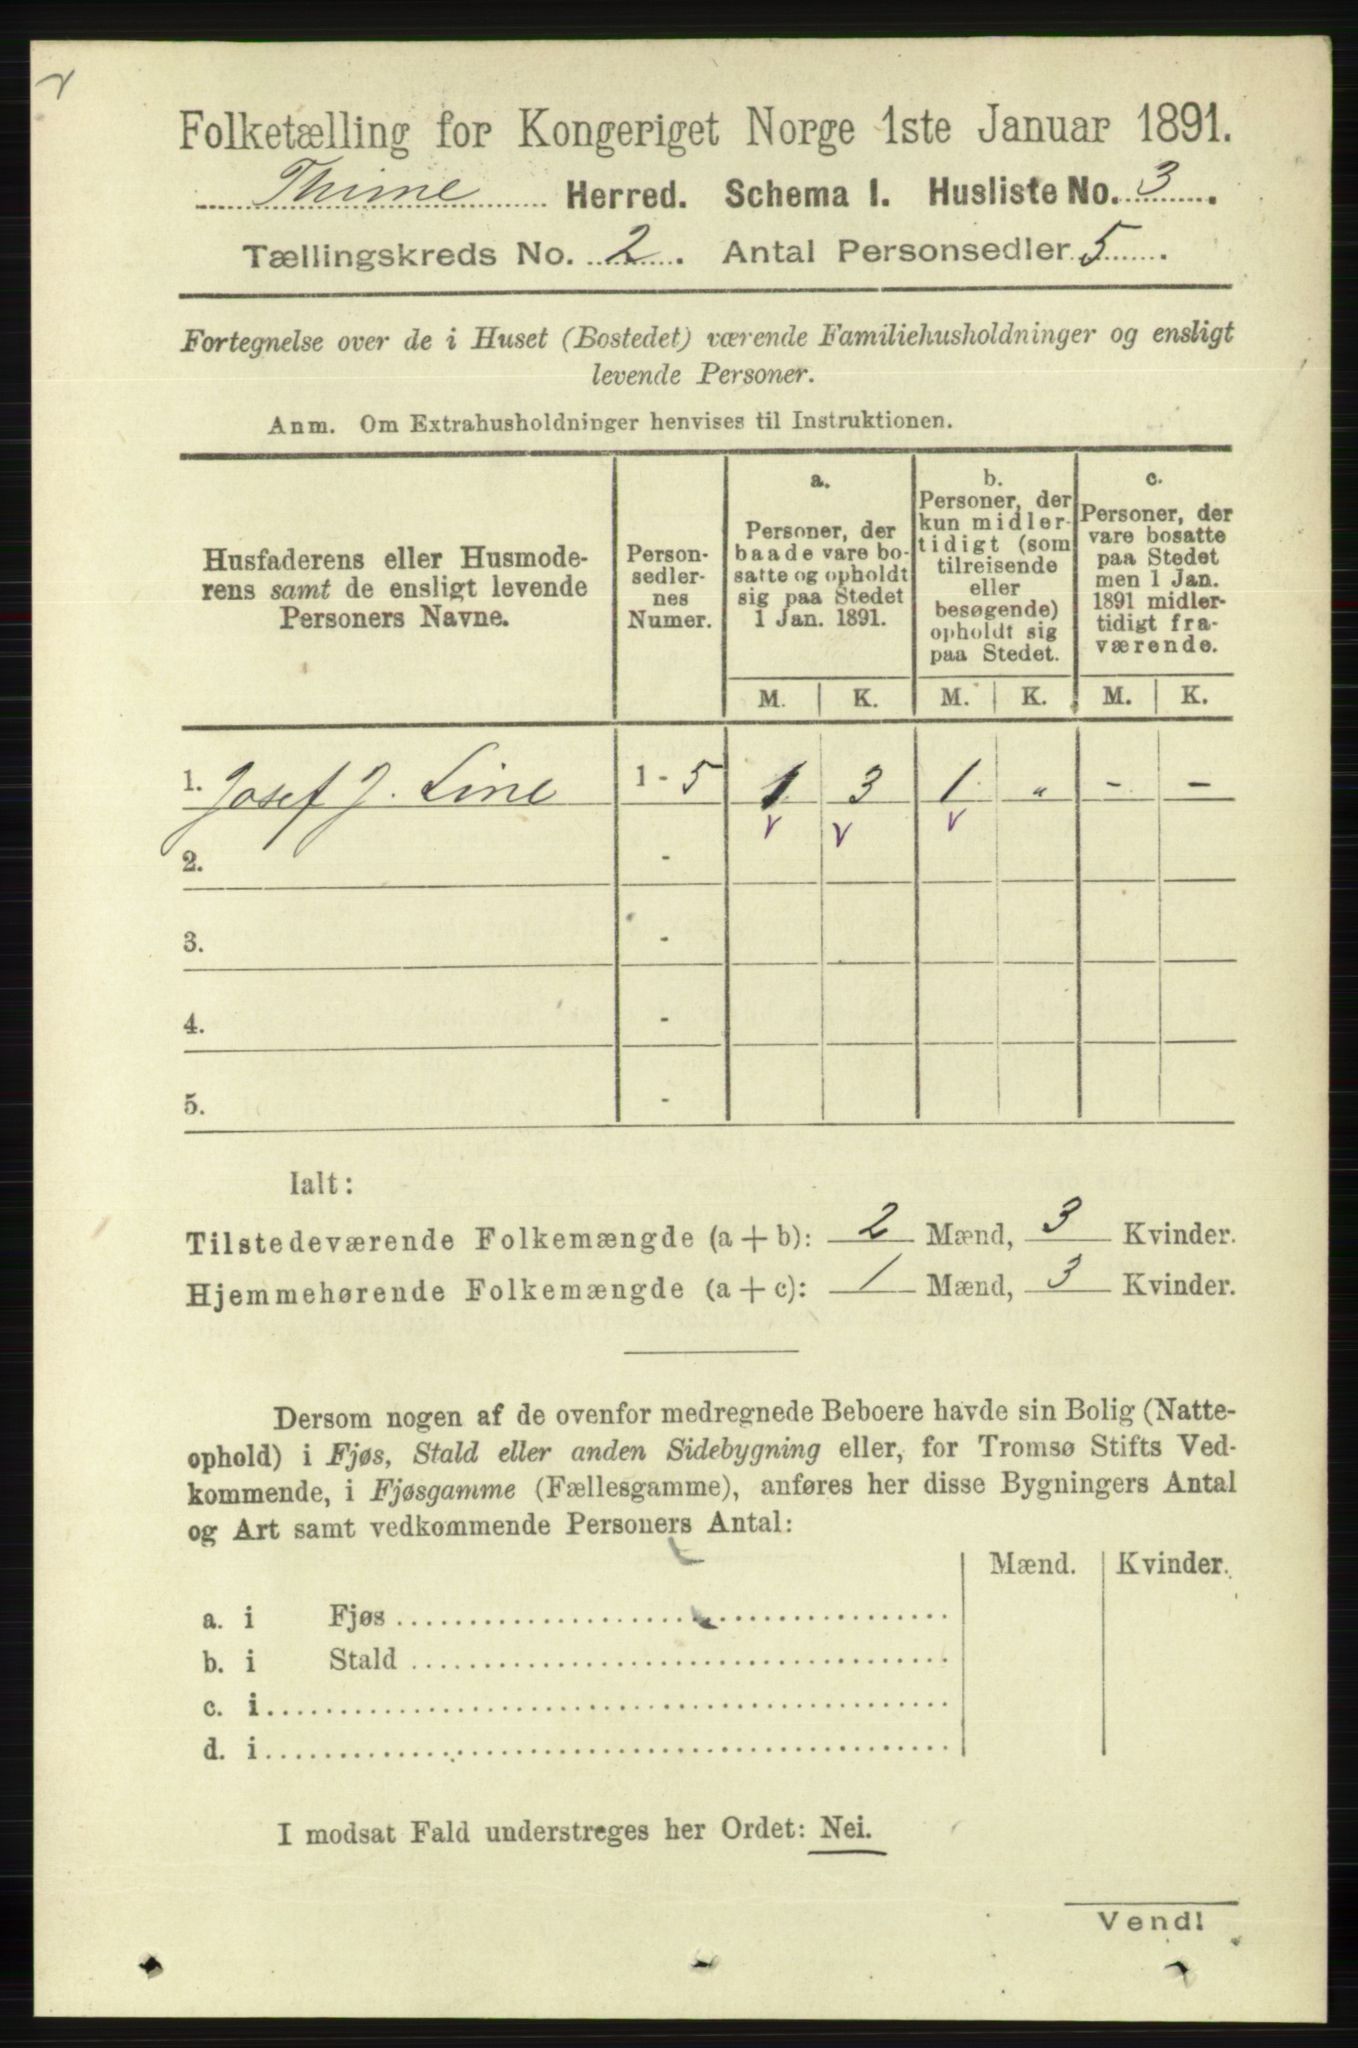 Folketælling for Kongeriget Norge 1ste Januar 1891.
Thime Herred. Schema I. Husliste No. 3.
Tællingskreds No. 2. Antal Personsedler 5.
Fortegnelse over de i Huset (Bostedet) værende Familiehusholdninger og ensligt
levende Personer.
Anm. Om Extrahusholdninger henvises til Instruktionen.
Husfaderens eller Husmode-
rens samt de ensligt levende
Personers Navne.
Person-
sedler-
nes
Numer.
a.
Personer, der
baade vare bo-
satte og opholdt
sig paa Stedet
1 Jan. 1891.
b.
Personer, der
kun midler-
tidigt (som
tilreisende
eller
besøgende)
opholdt sig
paa Stedet.
c.
Personer, der
vare bosatte
paa Stedet
men 1 Jan.
1891 midler-
tidigt fra-
værende.
M. K. M. K. M. K.
1. Josef J. Line 1 - 5 1 3 1 „ - -
2. -
3. -
4. -
5. -
Ialt:
Tilstedeværende Folkemængde (a + b): 2 Mænd, 3 Kvinder.
Hjemmehørende Folkemængde (a + c): 1 Mænd, 3 Kvinder.
Dersom nogen af de ovenfor medregnede Beboere havde sin Bolig (Natte-
ophold) i Fjøs, Stald eller anden Sidebygning eller, for Tromsø Stifts Ved-
kommende, i Fjøsgamme (Fællesgamme), anføres her disse Bygningers Antal
og Art samt vedkommende Personers Antal:
Mænd. Kvinder.
a. i Fjøs
b. i Stald
c. i
d. i
I modsat Fald understreges her Ordet: Nei.
Vend!